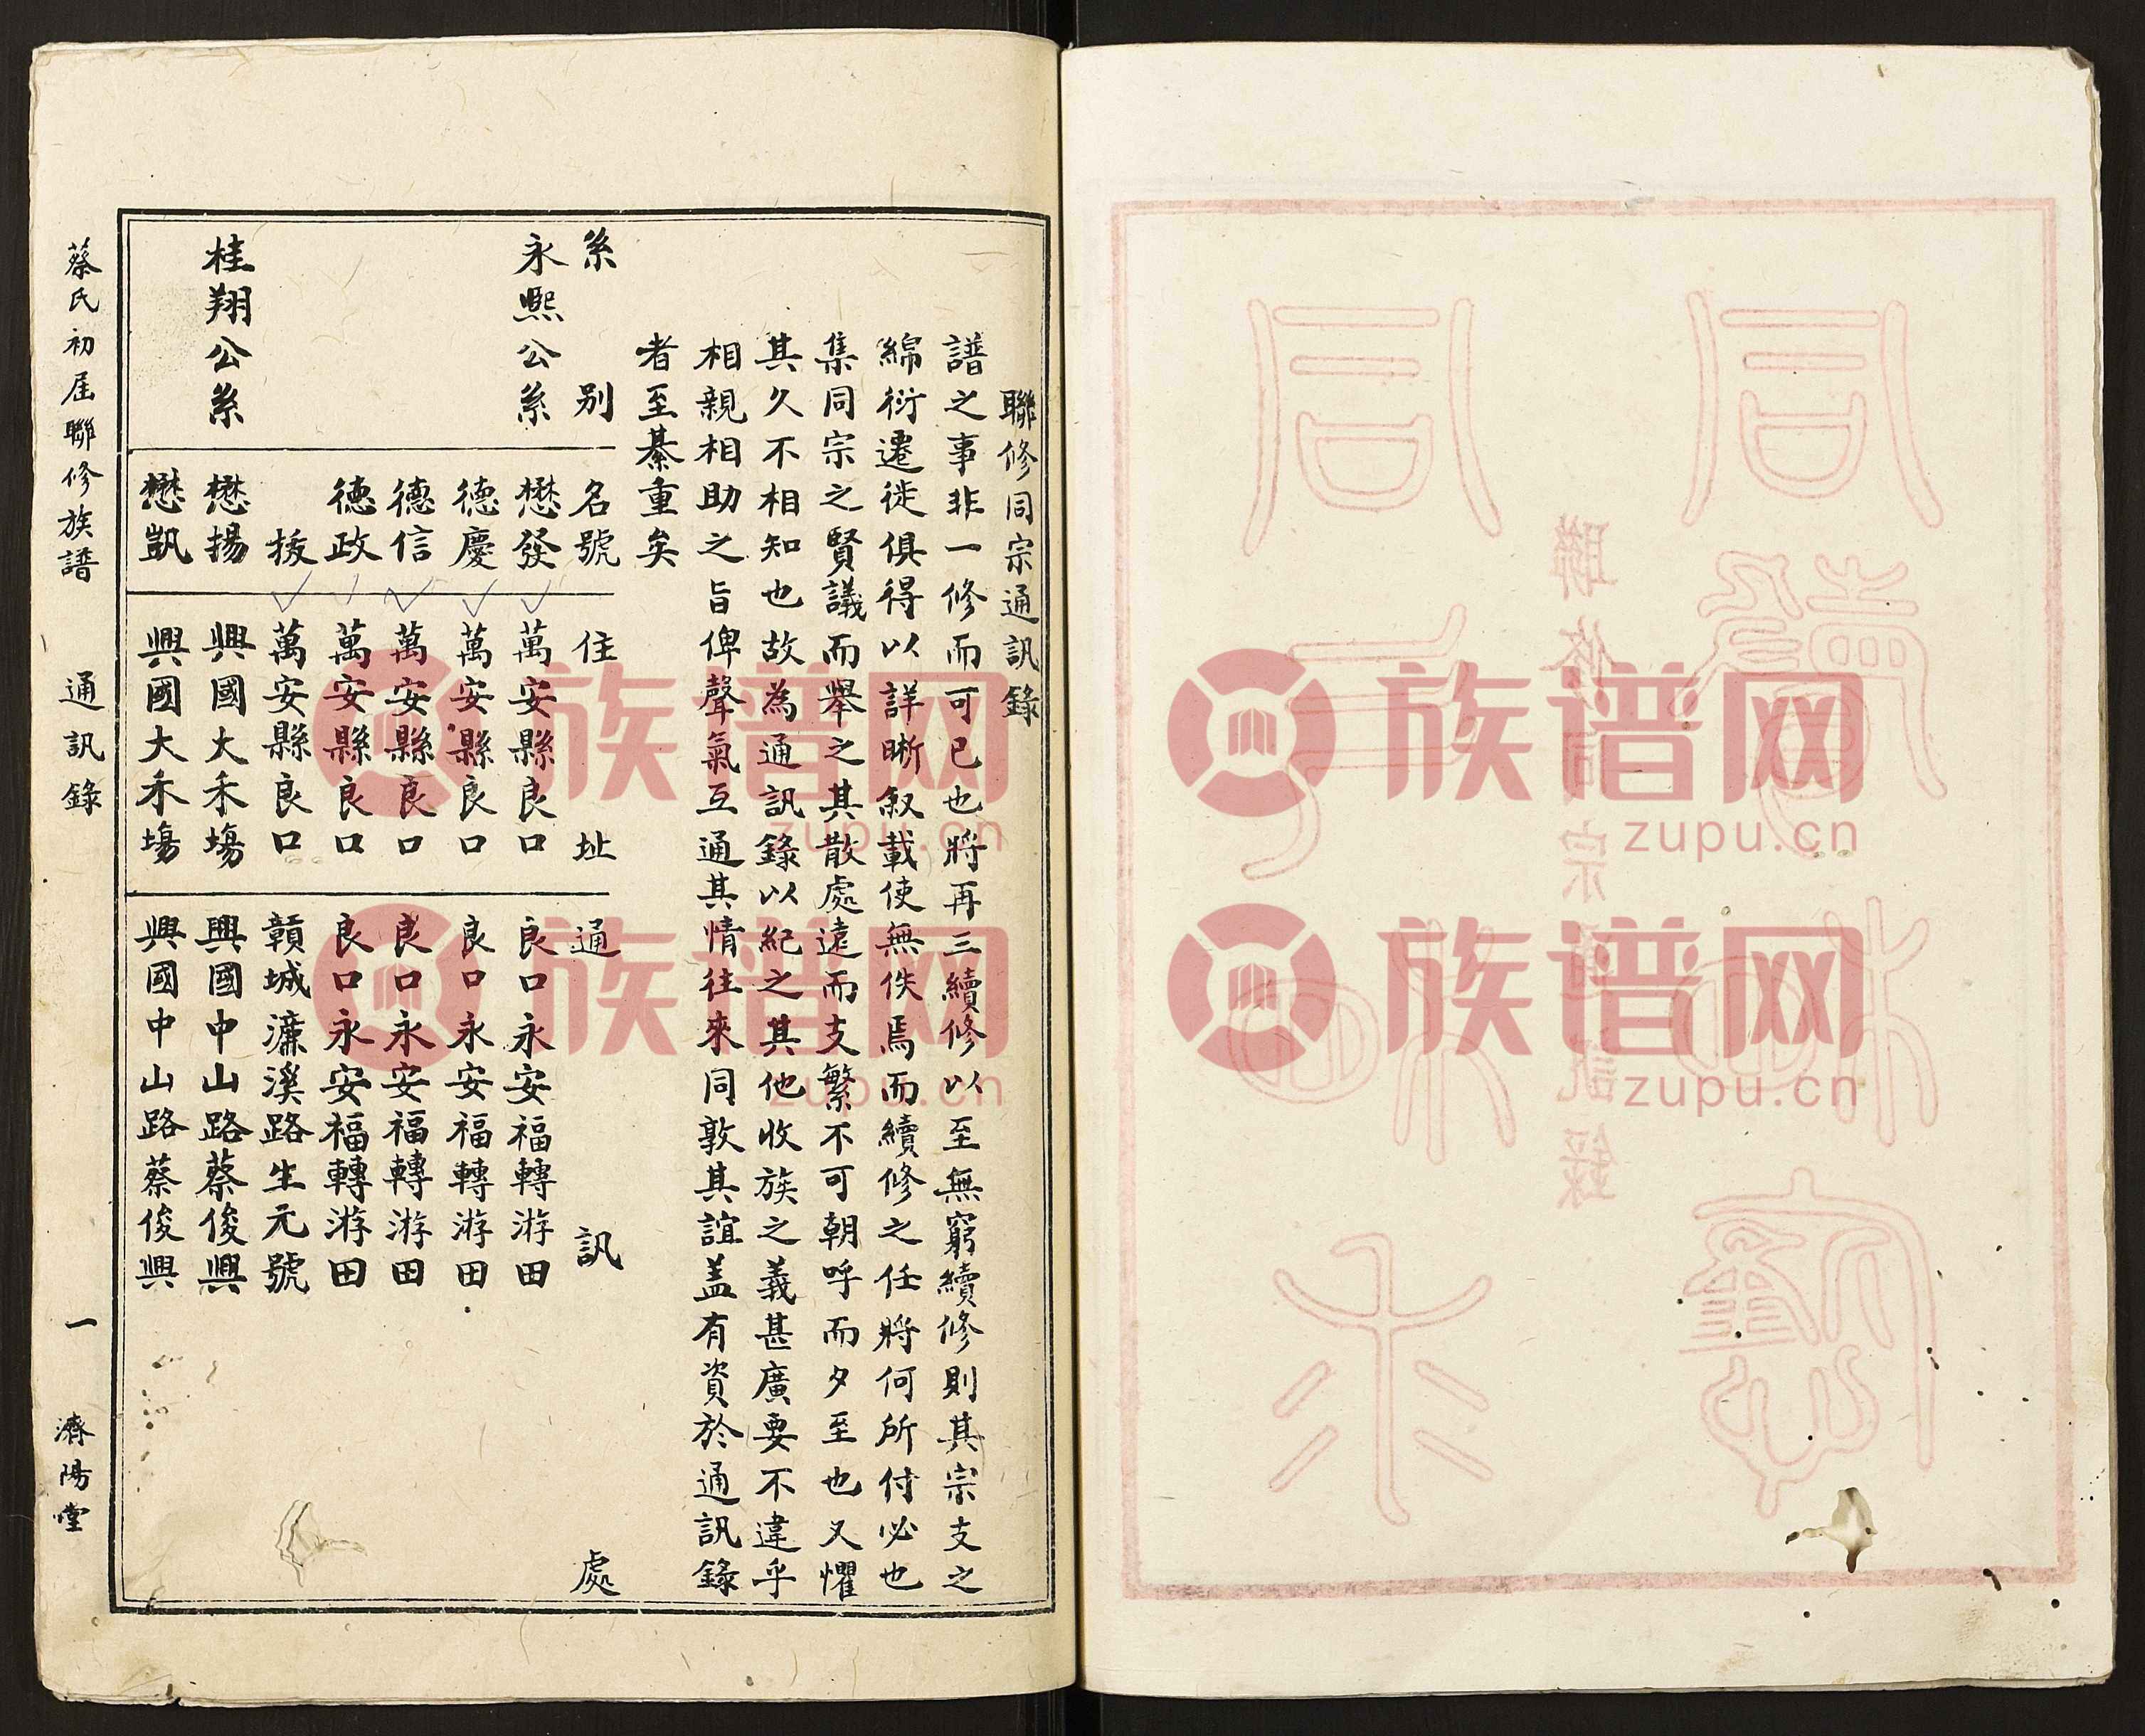 聯修同宗通訊錄
譜之事非一修而可已也將再三續修以至無窮續修則其宗支之
綿衍遷徙俱得以詳晰叙載使無佚焉而續修之任將何所付必也
集同宗之賢議而舉之其散處遠而支繁不可朝呼而夕至也又懼
其久不相知也故為通訊錄以紀之其他收族之義甚廣要不違乎
相親相助之旨俾聲氣互通其情往來同敦其誼盖有資於通訊錄
者至綦重矣
糸別 名號 住址 通訊處
永熙公糸 懋發 萬安縣良口 良口永安福轉游田
德慶 萬安縣良口 良口永安福轉游田
德信 萬安縣良口 良口永安福轉游田
德政 萬安縣良口 良口永安福轉游田
援 萬安縣良口 贛城濂溪路生元號
桂翔公糸 懋揚 興國大禾塲 興國中山路蔡俊興
懋凱 興國大禾塲 興國中山路蔡俊興
蔡氏初届聯修族譜 通訊錄 一 濟陽堂
族谱网
zupu.cn
族谱网
zupu.cn
族谱网
zupu.cn
族谱网
zupu.cn